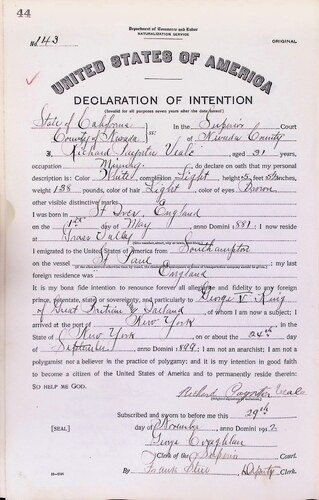 44
Department of Commerce and Labor
NATURALIZATION SERVICE
No. 143
ORIGINAL
UNITED STATES OF AMERICA
DECLARATION OF INTENTION
(Invalid for all purposes seven years after the date hereof)
State of California
County of Nevada ss:
In the Superior Court
of Nevada County
I, Richard Veale, aged 31 years,
occupation Mining, do declare on oath that my personal
description is: Color White, complexion Light, height 5 feet inches,
weight 138 pounds, color of hair Light, color of eyes Brown
other visible distinctive marks
I was born in St Ives, England
on the 1st day of May, anno Domini 1881; I now reside
at Grass Valley
I emigrated to the United States of America from Southampton
on the vessel St Paul; my last
foreign residence was England
It is my bona fide intention to renounce forever all allegiance and fidelity to any foreign
prince, potentate, state, or sovereignty, and particularly to George V King
of Great Britain & Ireland, of whom I am now a subject; I
arrived at the port of New York, in the
State of New York on or about the 24th day
of September, anno Domini 1899; I am not an anarchist; I am not a
polygamist nor a believer in the practice of polygamy; and it is my intention in good faith
to become a citizen of the United States of America and to permanently reside therein:
SO HELP ME GOD.
Richard Veale
Subscribed and sworn to before me this 29th
[SEAL] day of November, anno Domini 1912
George Coughlan
Clerk of the Superior Court.
By Deputy Clerk.